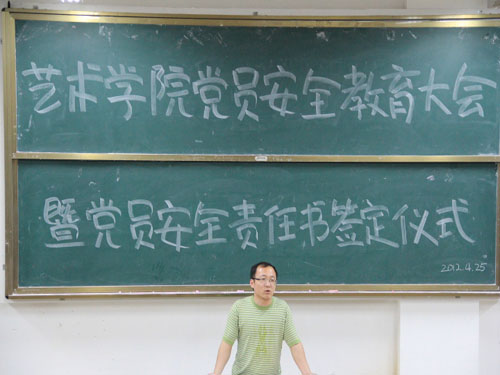 艺术学院党员安全教育大会
暨党员安全责任书签定仪式
2012.4.25